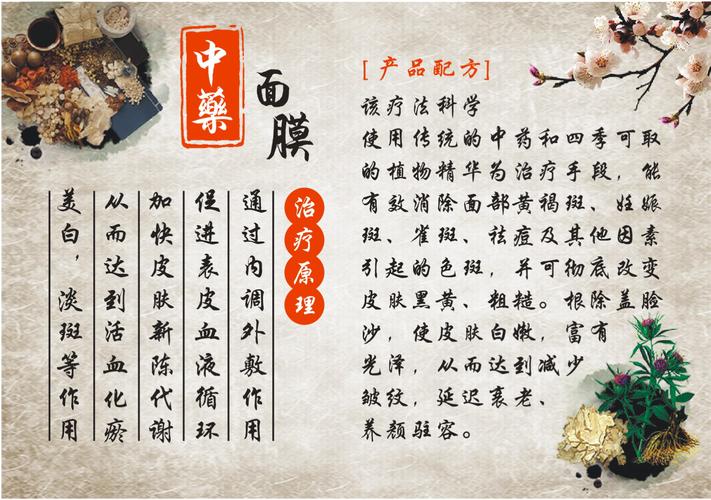 中藥
面膜
治疗原理
通过内调外敷作用
促进表皮血液循环
加快皮肤新陈代谢
从而达到活血化瘀
美白，淡斑等作用
[产品配方]
该疗法科学
使用传统的中药和四季可取
的植物精华为治疗手段，能
有效消除面部黄褐斑、妊娠
斑、雀斑、祛痘及其他因素
引起的色斑，并可彻底改变
皮肤黑黄、粗糙。根除盖脸
沙，使皮肤白嫩，富有
光泽，从而达到减少
皱纹，延迟衰老、
养颜驻容。